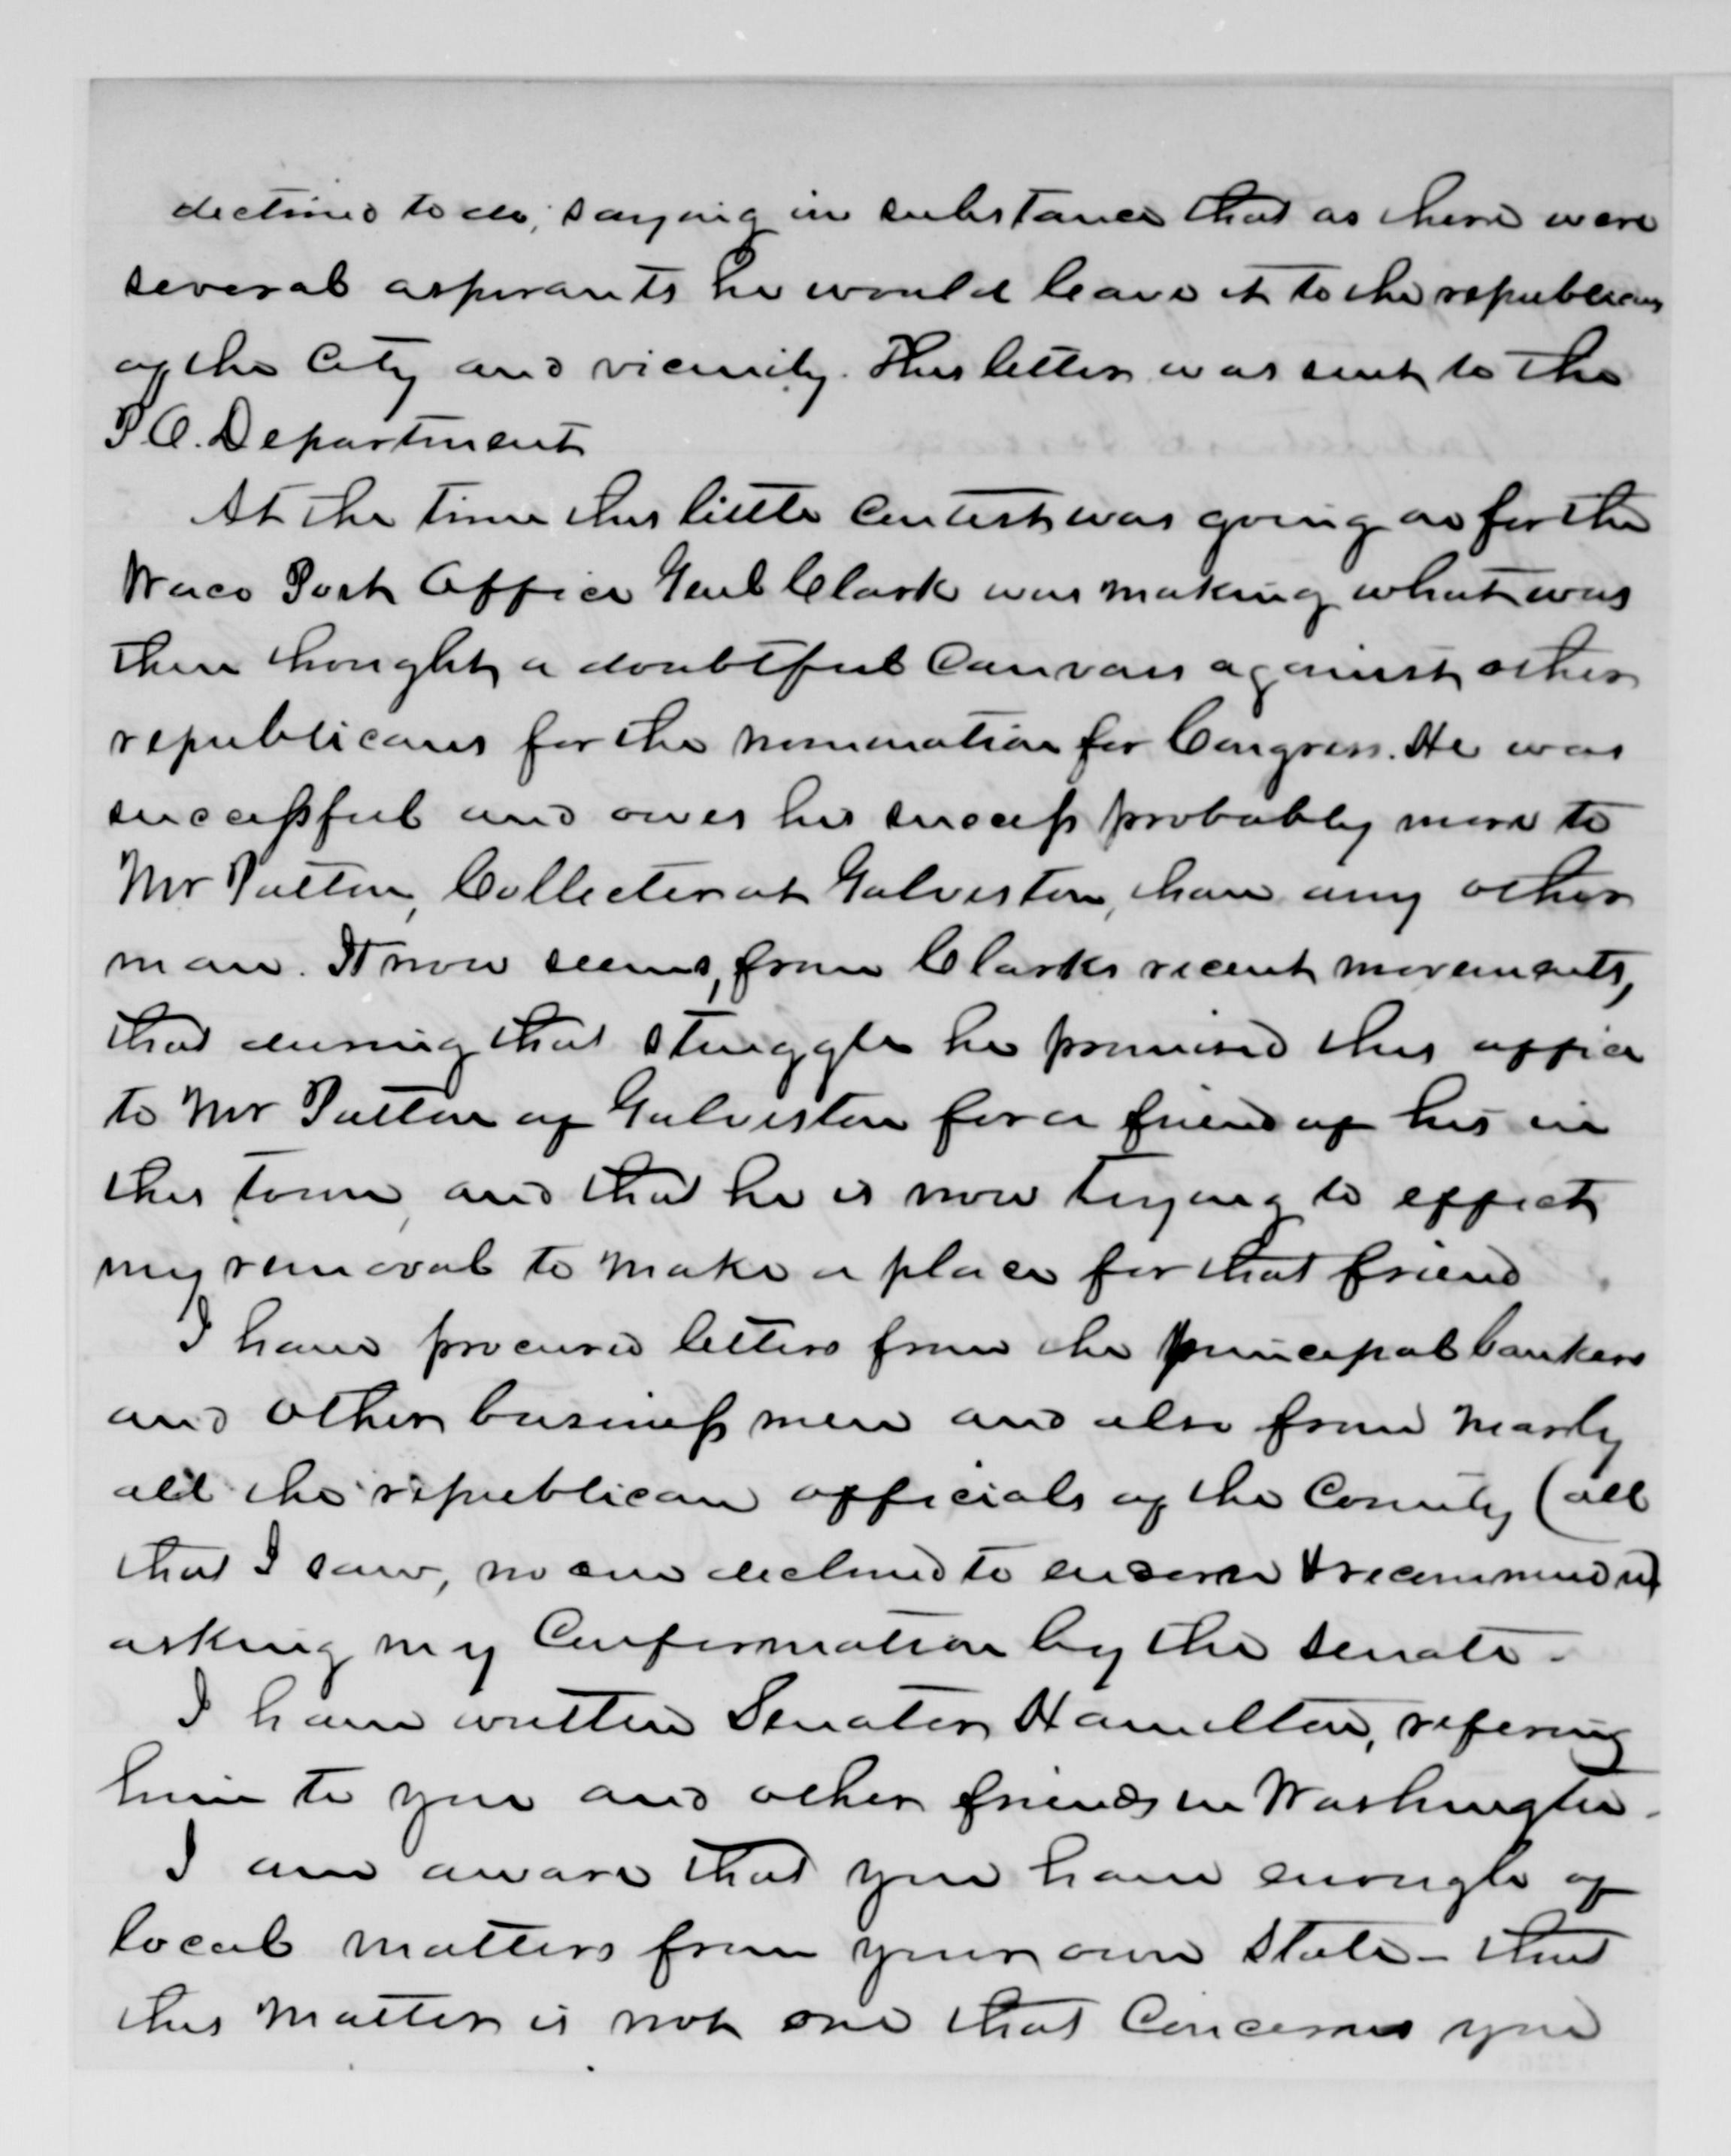 declined to do, saying in substance that as there were
several aspirants he would leave it to the republicans
of the City and vicinity. This letter was sent to the
P.O. Department
At the time this little contest was going on for the
Waco Post Office Genl Clark was making what was
then thought a doubtful canvass against other
republicans for the nomination for Congress. He was
successful and owes his success probably more to
Mr Patten, Collector at Galveston, than any other
man. It now seems, from Clarks recent movements,
that during that struggle he promised this office
to Mr Patten of Galveston for a friend of his in
this town, and that he is now trying to effect
my removal to make a place for that friend
I have procured letters from the principal bankers
and other business men and also from nearly
all the republican officials of the County (all
that I saw, no one declined to endorse & recommend)
asking my Confirmation by the Senate.
I have written Senator Hamilton, refering
him to you and other friends in Washington.
I am aware that you have enough of
local matters from your own State - that
this matter is not one that concerns you